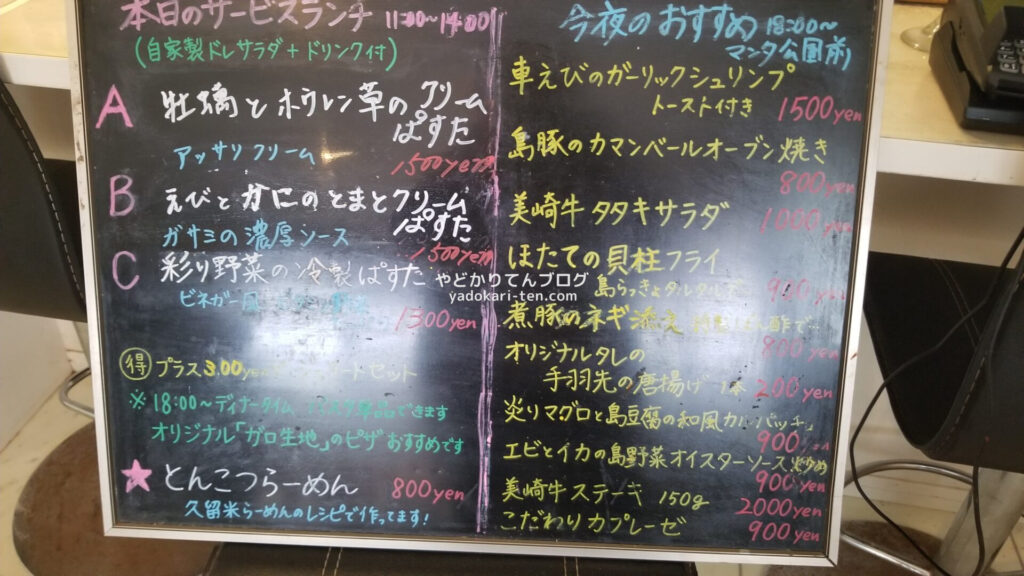 本日のサービスランチ 11:00~14:00
(自家製ドレサラダ+ドリンク付)
A 牡蠣とホウレン草のクリーム
ぱすた
アッサリクリーム 1500yen
B えびとかにのとまとクリーム
ぱすた
ガサミの濃厚ソース 1500yen
C 彩り野菜の冷製ぱすた
ビネガー
1300yen
得 プラス300yen セット
※18:00~ディナータイム 単品できます
オリジナル「ガロ生地」のピザ おすすめです
★とんこつらーめん 800yen
久留米らーめんのレシピで作ってます!
今夜のおすすめ 18:00~
マンタ公園前
車えびのガーリックシュリンプ
トースト付き 1500yen
島豚のカマンベールオーブン焼き
800yen
美崎牛タタキサラダ 1000yen
ほたての貝柱フライ
島らっきょタルタルで
煮豚のネギ
800yen
オリジナルタレの
手羽先の唐揚げ 1本 200yen
炎りマグロと島豆腐の和風カルパッチョ
900yen
エビとイカの島野菜オイスターソース炒め
900yen
美崎牛ステーキ 150g 2000yen
こだわりカプレーゼ 900yen
やどかりてんブログ
yadokari-ten.com